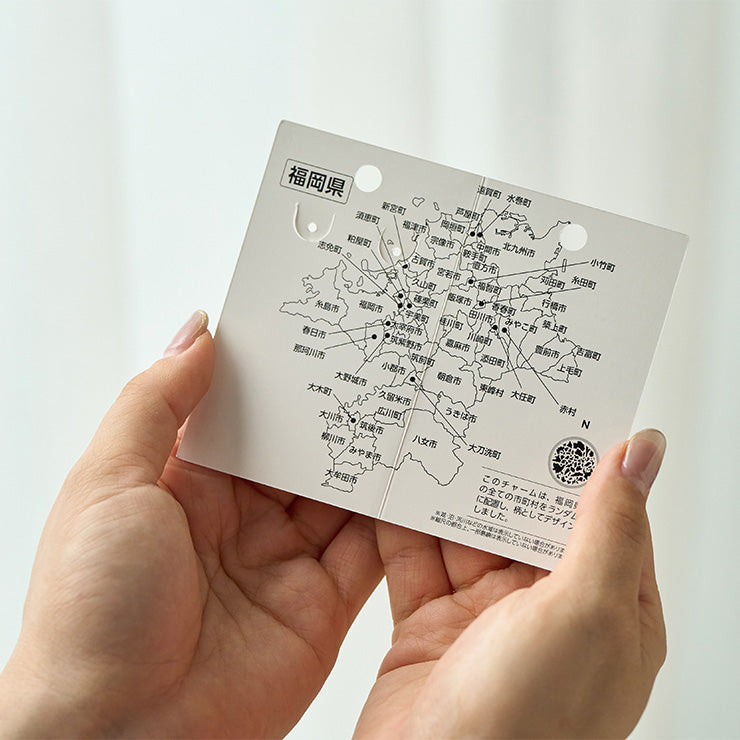 福岡県
遠賀町
水巻町
芦屋町
新宮町
岡垣町
須恵町
福津市
中間市
北九州市
宗像市
粕屋町
鞍手町
志免町
古賀市
直方市
小竹町
宮若市
久山町
福智町
苅田町
糸田町
篠栗町
飯塚市
行橋市
糸島市
福岡市
宇美町
香春町
田川市
みやこ町
桂川町
築上町
太宰府市
春日市
川崎町
筑紫野市
嘉麻市
豊前市
吉富町
那珂川市
筑前町
添田町
上毛町
小郡市
朝倉市
大野城市
東峰村
大任町
大木町
久留米市
赤村
広川町
うきは市
大川市
筑後市
N
柳川市
みやま市
八女市
大刀洗町
大牟田市
このチャームは、福岡県
の全ての市町村をランダム
に配置し、柄としてデザイン
しました。
※湖・沼・河川などの水域は表示していない場合がありま
※縮尺の都合上、一部島嶼は表示していない場合があり